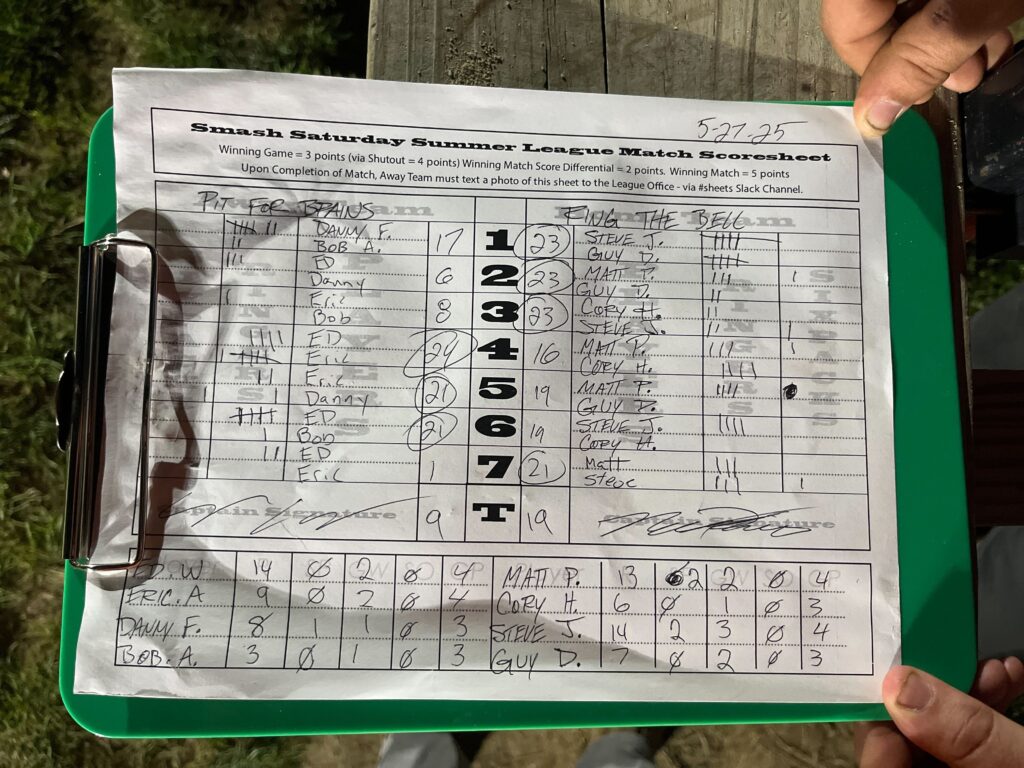 5-27-25
Smash Saturday Summer League Match Scoresheet
Winning Game = 3 points (via Shutout = 4 points) Winning Match Score Differential = 2 points. Winning Match = 5 points
Upon Completion of Match, Away Team must text a photo of this sheet to the League Office - via #sheets Slack Channel.
PIT FOR BRAINS RING THE BELL
DANNY F. 17 1 23 STEVE J.
BOB A. GUY D.
ED 6 2 23 MATT P.
Danny GUY D.
Eric 8 3 23 CORY H.
Bob STEVE J.
ED 24 4 16 MATT P.
Eric CORY H.
Eric 21 5 19 MATT P.
Danny GUY D.
ED 21 6 19 STEVE J.
Bob CORY H.
ED 1 7 21 Matt
Eric Steve
Captain Signature 9 T 19 Captain Signature
ED. W 14 0 2 0 4 MATT P. 13 2 2 0 4
ERIC. A 9 0 2 0 4 CORY H. 6 0 1 0 3
DANNY F. 8 1 1 0 3 STEVE J. 14 2 3 0 4
BOB. A. 3 0 1 0 3 GUY D. 7 0 2 0 3